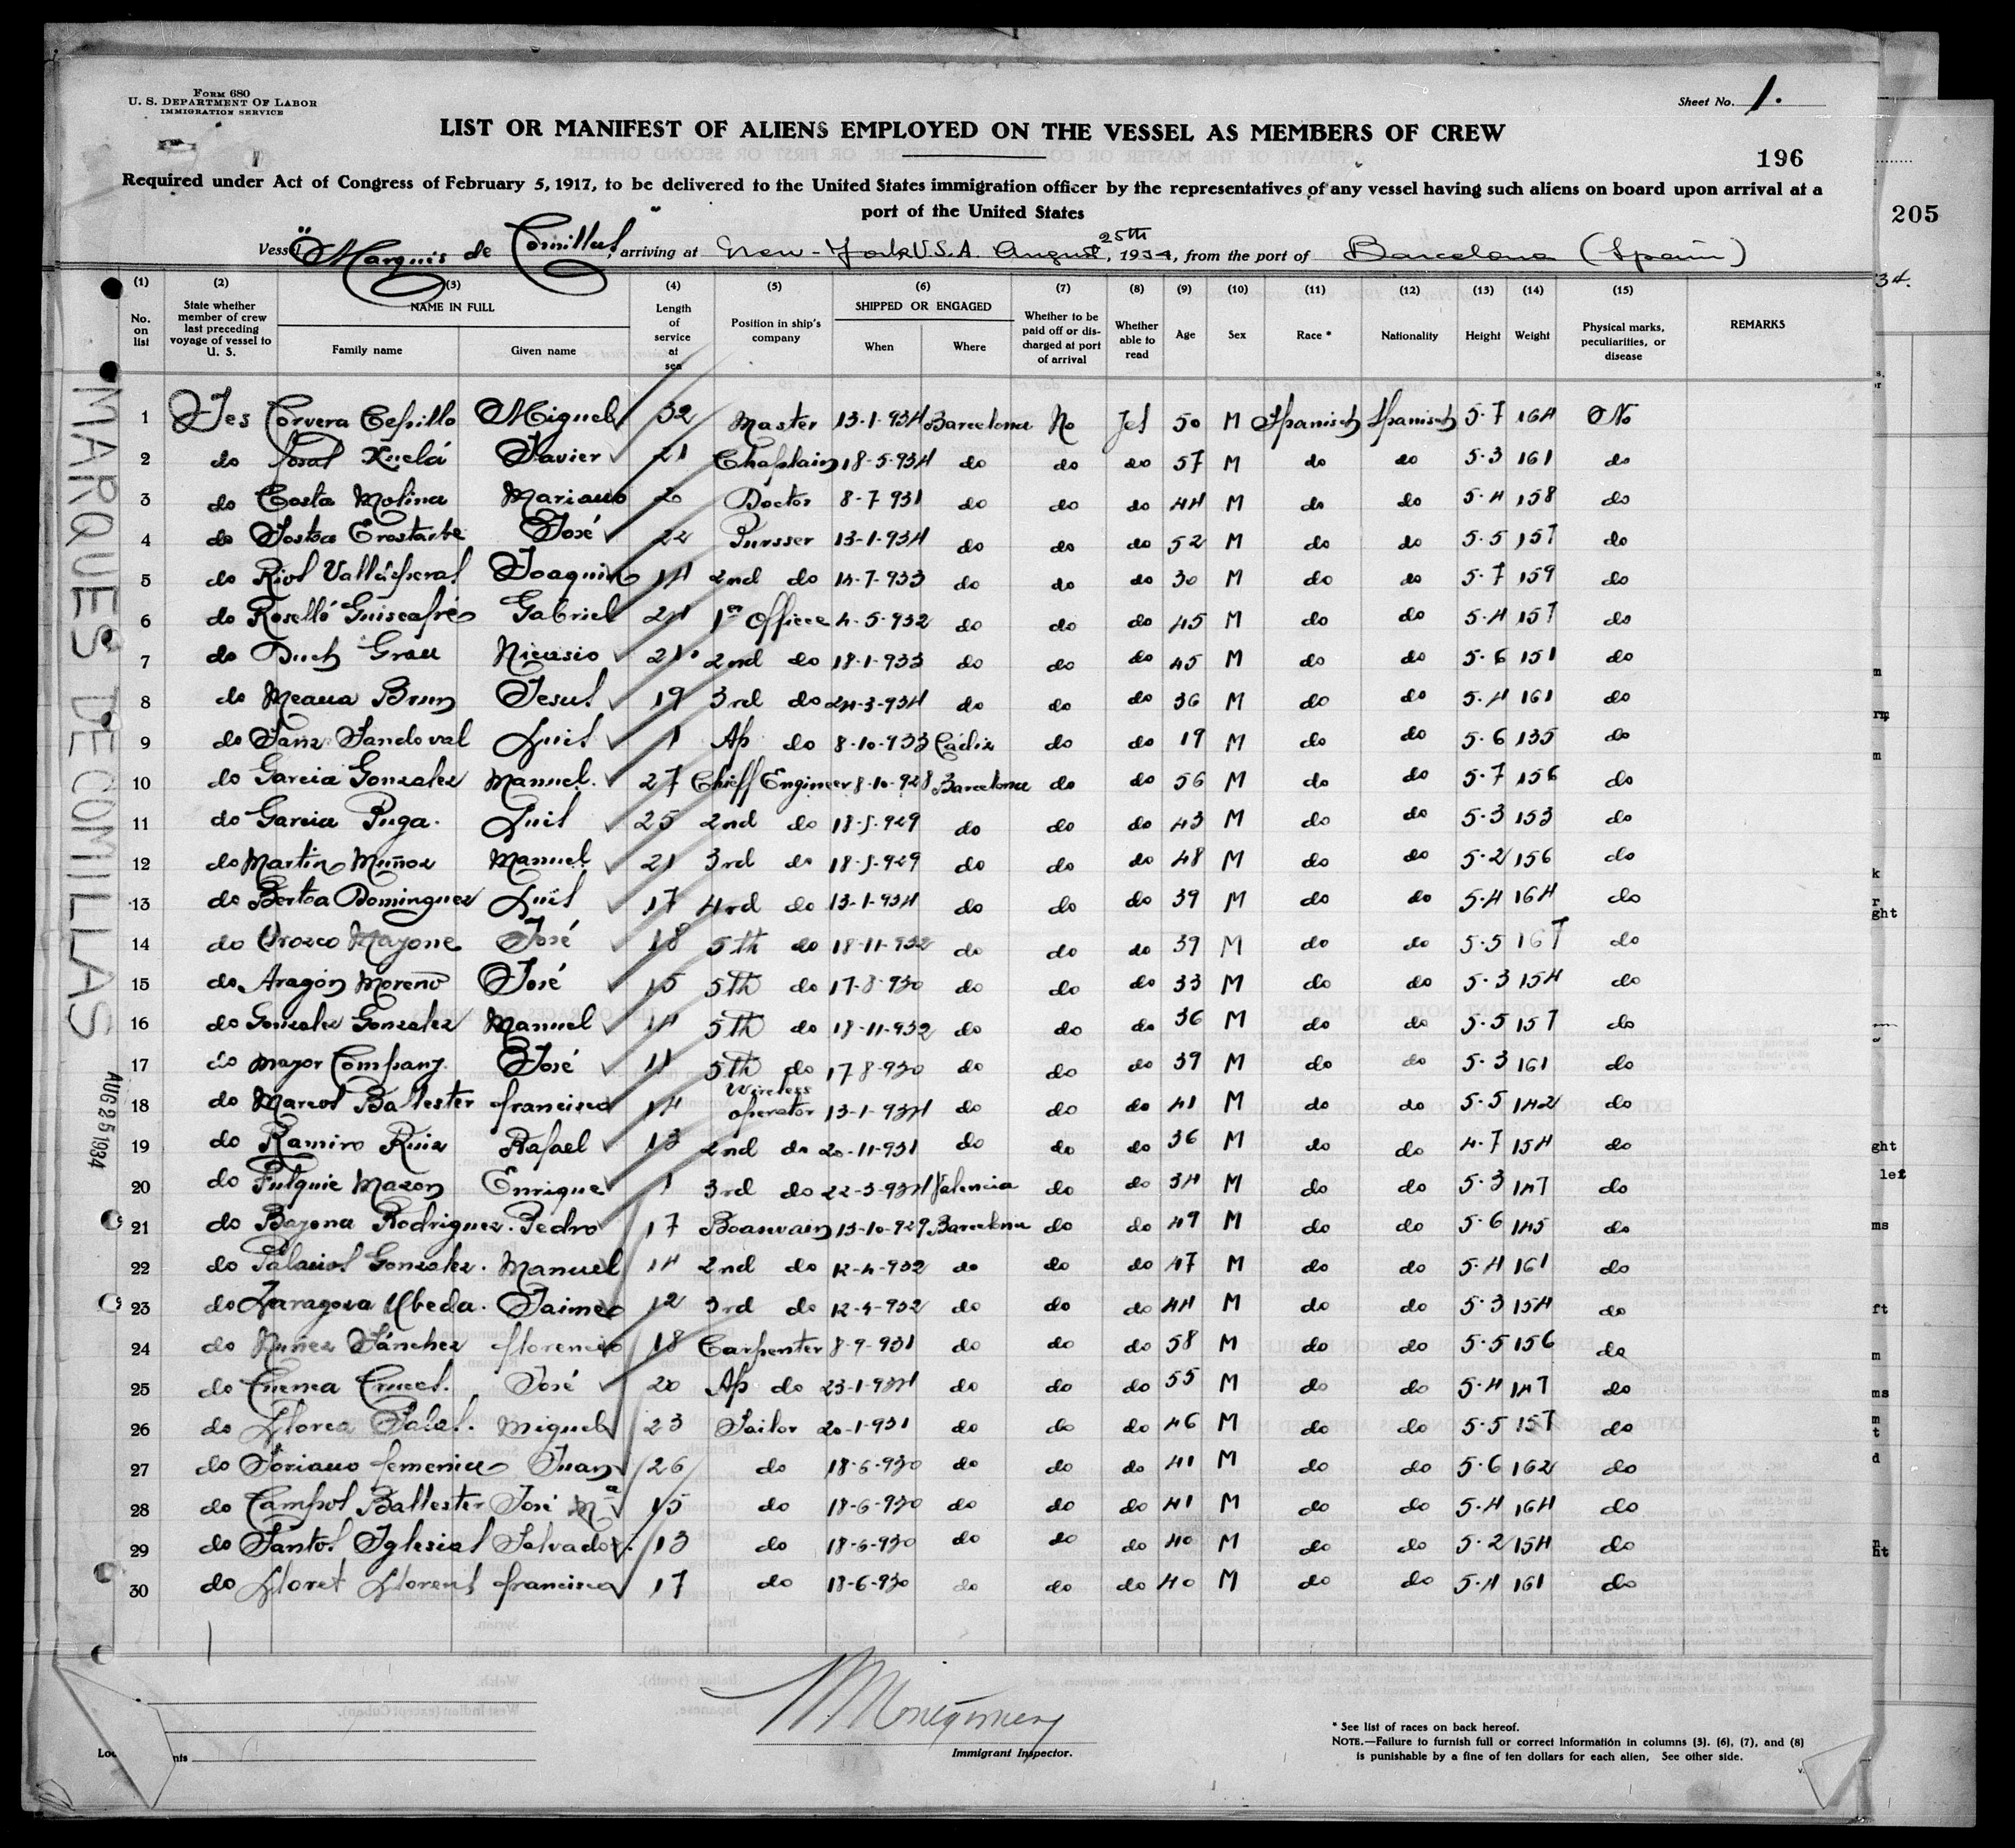 Form 680
U. S. DEPARTMENT OF LABOR
IMMIGRATION SERVICE
Sheet No. 1.
LIST OR MANIFEST OF ALIENS EMPLOYED ON THE VESSEL AS MEMBERS OF CREW
196
Required under Act of Congress of February 5, 1917, to be delivered to the United States immigration officer by the representatives of any vessel having such aliens on board upon arrival at a
port of the United States
205
Vessel "Marquis de Comillas", arriving at New-York U.S.A. August 25th, 1934, from the port of Barcelona (Spain)
34.
(1) (2) (3) (4) (5) (6) (7) (8) (9) (10) (11) (12) (13) (14) (15)
No. on list State whether member of crew last preceding voyage of vessel to U. S. NAME IN FULL Family name Given name Length of service at sea Position in ship's company SHIPPED OR ENGAGED When Where Whether to be paid off or discharged at port of arrival Whether able to read Age Sex Race * Nationality Height Weight Physical marks, peculiarities, or disease REMARKS
MARQUES DE COMILLAS
AUG 25 1934
1 Yes Corvera Cepillo Miguel 32 Master 13-1-934 Barcelona No Yes 50 M Spanish Spanish 5-7 164 No
2 do Xuclá Javier 21 Chaplain 18-5-934 do do do 57 M do do 5-3 161 do
3 do Costa Molina Mariano 20 Doctor 8-7 931 do do do 44 M do do 5-4 158 do
4 do José 22 Pursser 13-1-934 do do do 52 M do do 5-5 157 do
5 do Joaquin 14 2nd do 14-7-933 do do do 30 M do do 5-7 159 do
6 do Roselló Guiscafré Gabriel 24 1er Officer 4-5-932 do do do 45 M do do 5-4 157 do
7 do Duch Grau Nicasio 21 2nd do 18-1-933 do do do 45 M do do 5-6 151 do
8 do Meaua Brun Jesus 19 3rd do 24-3-934 do do do 36 M do do 5-4 161 do
9 do Sanz Sandoval Luis 1 Ap do 8-10-933 Cadiz do do 19 M do do 5-6 135 do
10 do Garcia Gonzalez Manuel. 27 Chieff Engineer 8-10-928 Barcelona do do 56 M do do 5-7 156 do
11 do Garcia Puga. Luis 25 2nd do 18-5-929 do do do 43 M do do 5-3 153 do
12 do Martin Muñoz Manuel 21 3rd do 18-5-929 do do do 48 M do do 5-2 156 do
13 do Bertoa Dominguez Luis 17 4rd do 13-1-934 do do do 39 M do do 5-4 164 do
14 do Orozco Mayone José 18 5th do 18-11-932 do do do 39 M do do 5-5 167 do
15 do Aragón Moreno José 15 5th do 17-8-930 do do do 33 M do do 5-3 154 do
16 do Gonzalez Gonzalez Manuel 14 5th do 18-11-932 do do do 36 M do do 5-5 157 do
17 do Mayor Company José 11 5th do 17-8-930 do do do 39 M do do 5-3 161 do
18 do Marcos Ballester francisco 14 Wireless operator 13-1-934 do do do 41 M do do 5-5 142 do
19 do Ramiro Ruiz Rafael 13 2nd do 20-11-931 do do do 36 M do do 4-7 154 do
20 do Mazon Enrique 1 3rd do 22-3-934 Valencia do do 34 M do do 5-3 147 do
21 do Bayona Rodriguez. Pedro 17 Boaswain 13-10-929 Barcelona do do 49 M do do 5-6 145 do
22 do Palacios Gonzalez. Manuel 14 2nd do 12-4-932 do do do 47 M do do 5-4 161 do
23 do Zaragoza Ubeda. Jaime 12 3rd do 12-4-932 do do do 44 M do do 5-3 154 do
24 do Nuñez Sánchez florencio 18 Carpenter 8-9-931 do do do 58 M do do 5-5 156 do
25 do Cruces. José 20 Ap do 23-1-934 do do do 55 M do do 5-4 147 do
26 do Llorca Salas. Miguel 23 Sailor 20-1-931 do do do 46 M do do 5-5 157 do
27 do Soriano femenia Juan 26 do 18-6-930 do do do 41 M do do 5-6 162 do
28 do Campos Ballester José Ma 15 do 18-6-930 do do do 41 M do do 5-4 164 do
29 do Santos Iglesias Salvador. 13 do 18-6-930 do do do 40 M do do 5-2 154 do
30 do Lloret Llorens francisco 17 do 18-6-930 do do do 40 M do do 5-4 161 do
Montgomery
Immigrant Inspector.
* See list of races on back hereof.
NOTE.—Failure to furnish full or correct information in columns (3), (6), (7), and (8)
is punishable by a fine of ten dollars for each alien, See other side.